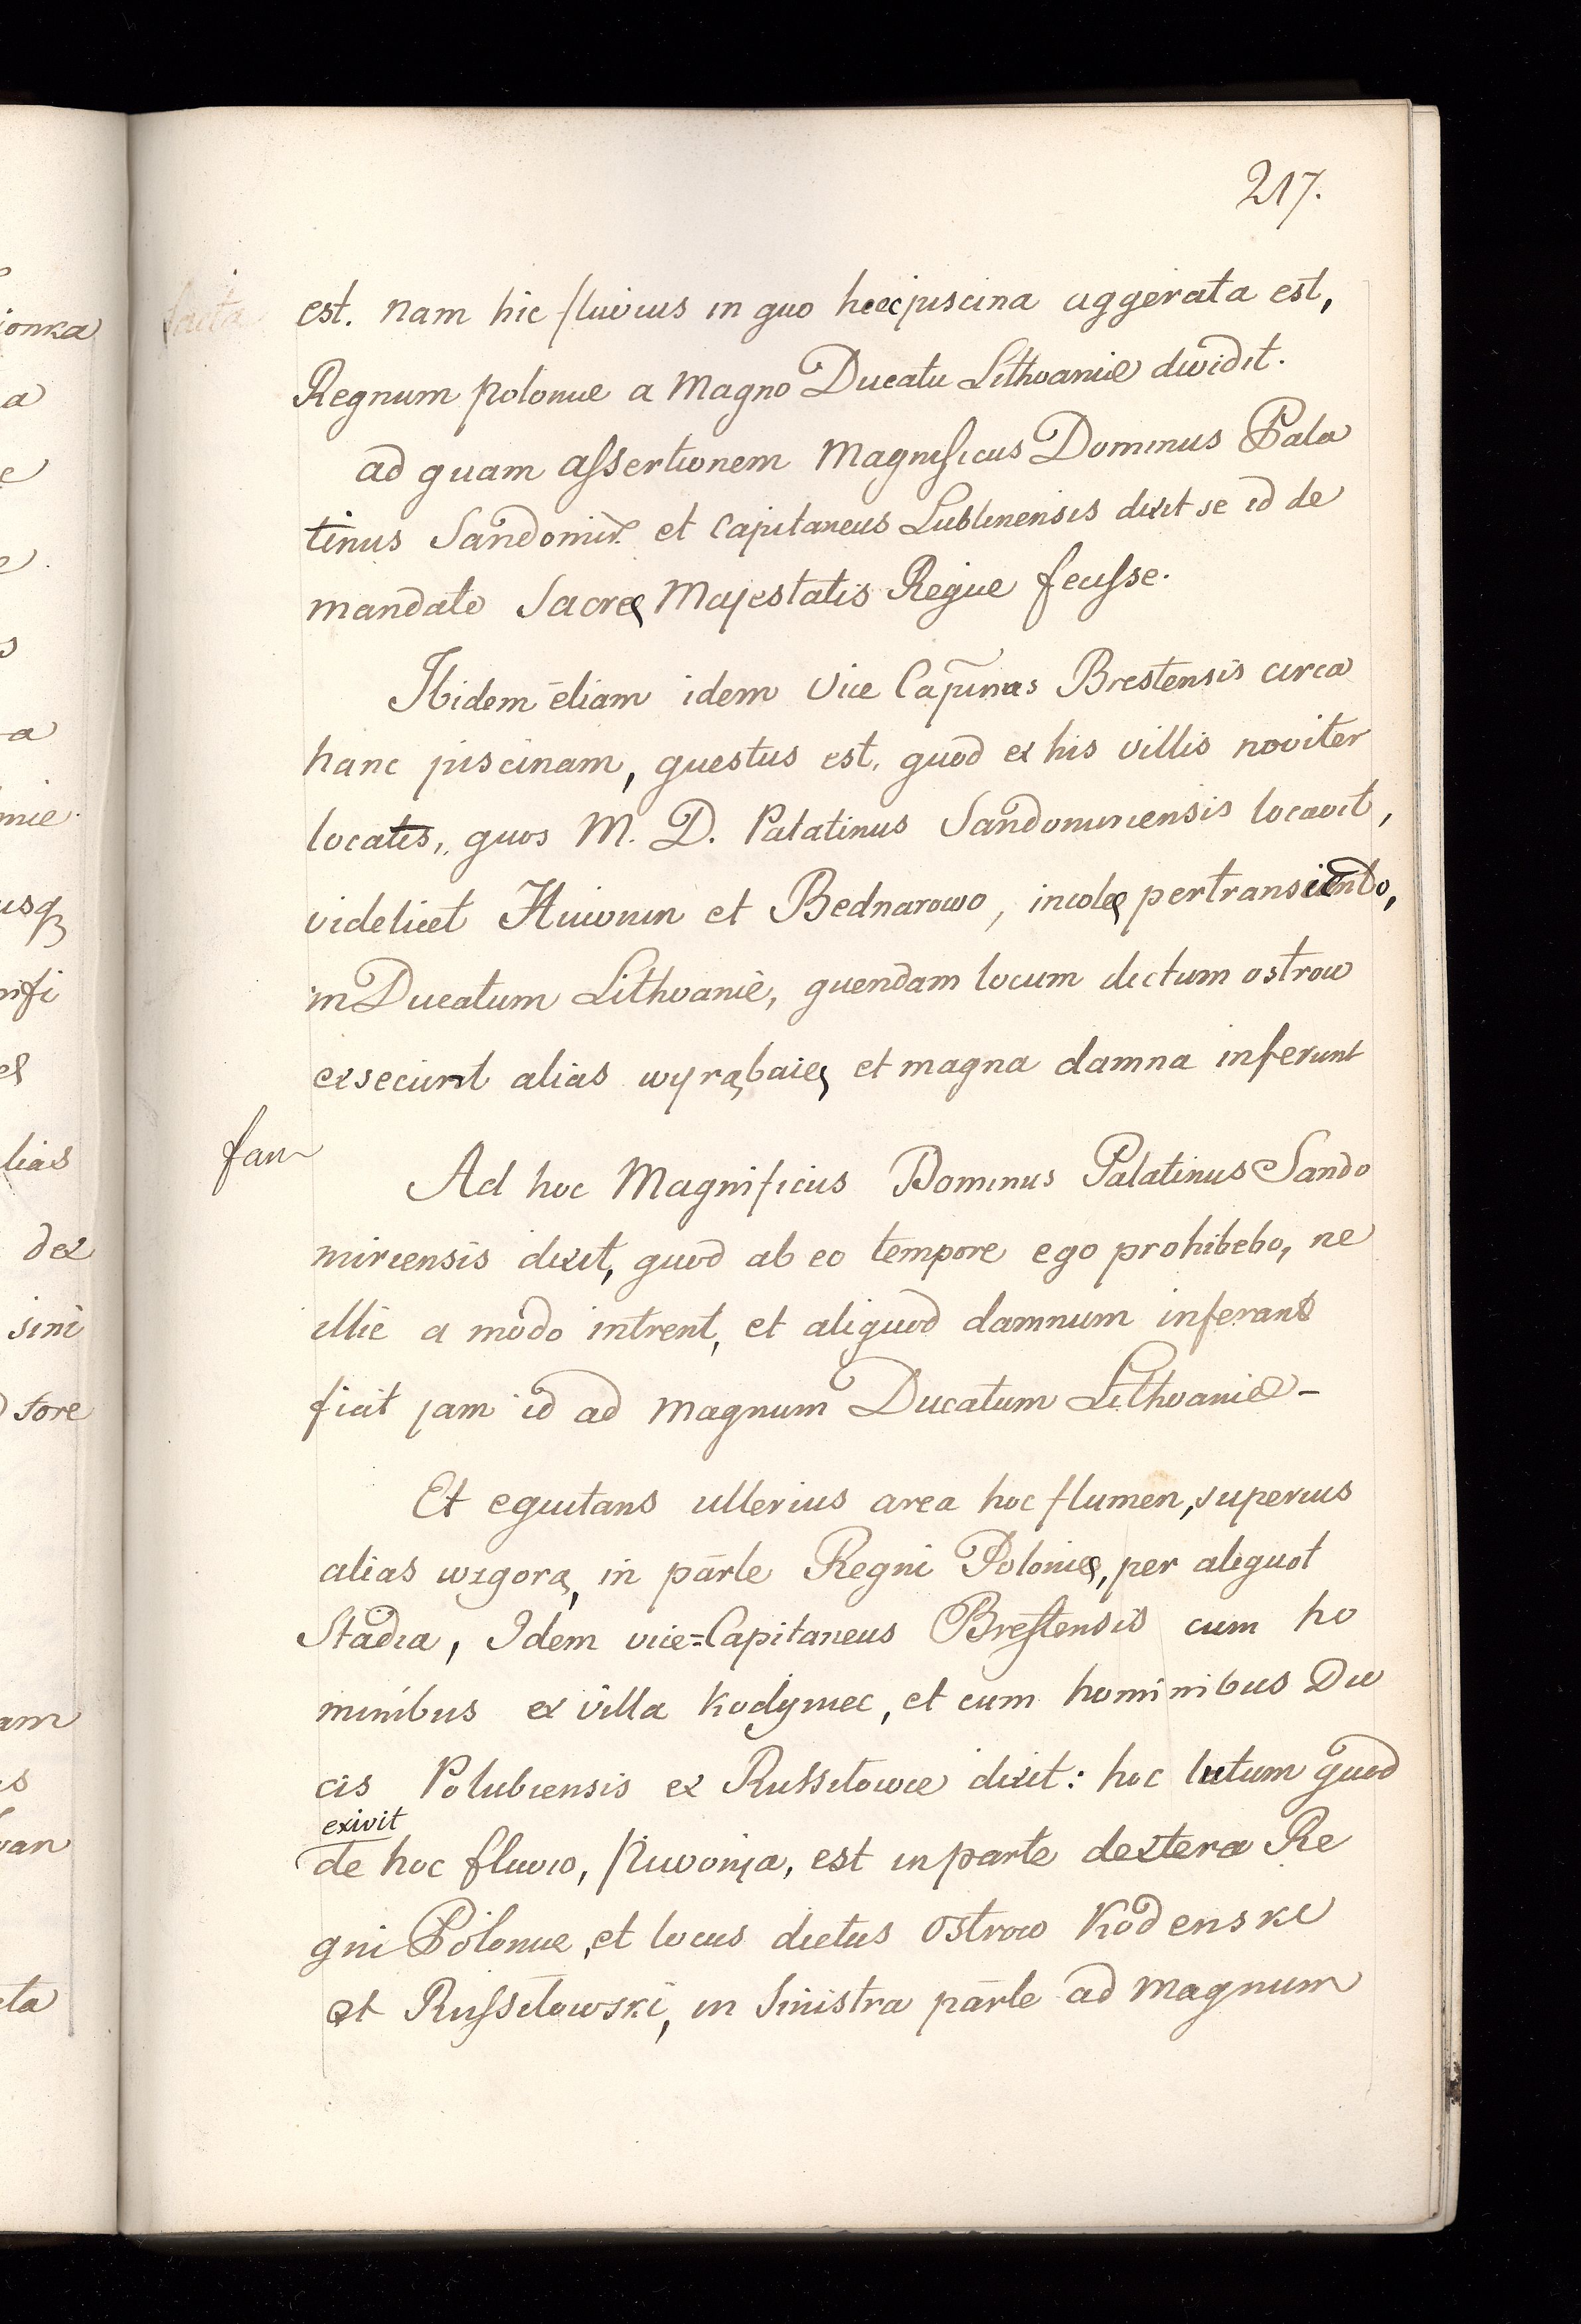 217.
est. nam hic fluvius in quo hec piscina aggerata est,
Regnum polonie a Magno Ducatu Lithvanie dividit.
ad quam assertionem Magnificus Dominus Pala
tinus Sandomir. et Capitaneus Lublinensis dixit se id de
mandato Sacre Majestatis Regie fecisse.
Ibidem etiam idem Vice Capīnas Brestensis circa
hanc piscinam, questus est, quod ex his villis noviter
locatis, quos M. D. Palatinus Sandomiriensis locavit,
videlicet et Bednarowo, incole pertranseundo,
in Ducatum Lithvanie, quendam locum dictum ostrow
exsecunt alias wyrąbaię et magna damna inferunt
fan
Ad hoc Magnificus Dominus Palatinus Sando
miriensis dixit, quod ab eo tempore ego prohibebo, ne
illic a modo intrent, et aliquod damnum inferant
ficit jam id ad Magnum Ducatum Lithvanie-
Et equitans ulterius circa hoc flumen, superius
alias wzgorą, in parte Regni Polonie, per aliquot
Stadia, Idem vice=Capitaneus Brestensis cum ho
minibus ex villa Kodymec, et cum hominibus Du
cis Polubiensis ex Russilowce dixit: hoc lutum quod
exivit
de hoc fluvio, est in parte dextera Re
gni Polonie, et locus dictus Ostrow Kodenski
et Russilowski, in Sinistra parte ad Magnum
ionka
a
e
e.
s
a
mie.
usq
nifi
lias
dex
sini
tore
am
is
van
eta